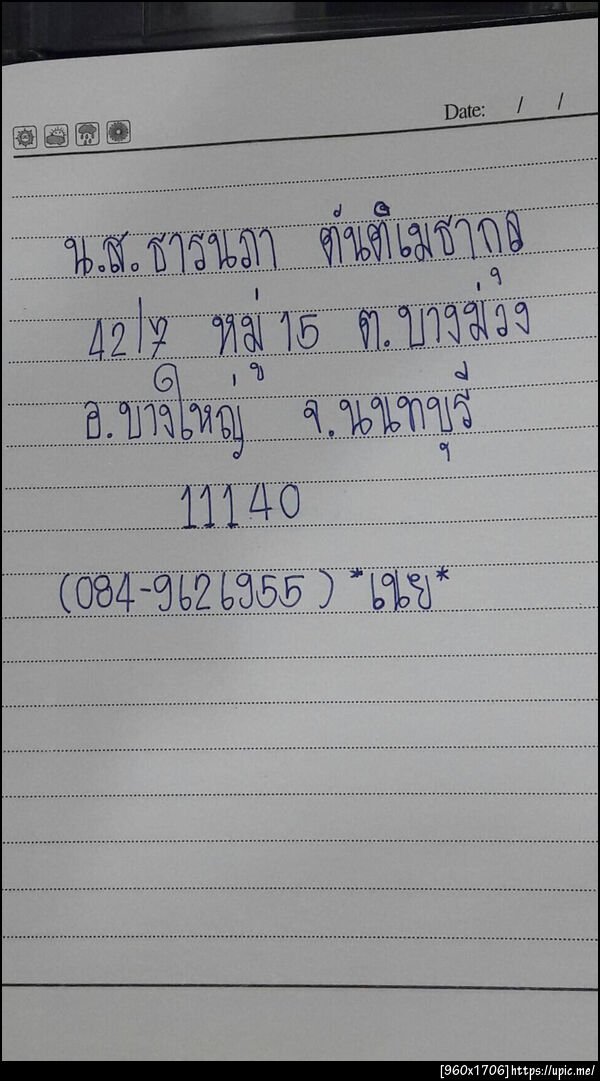 Date: / /
น.ส.ธารนภา ตันติเมธากุล
42/7 หมู่ 15 ต.บางม่วง
อ.บางใหญ่ จ.นนทบุรี
11140
(084-9626955) *เนย*
[960x1706]https://upic.me/